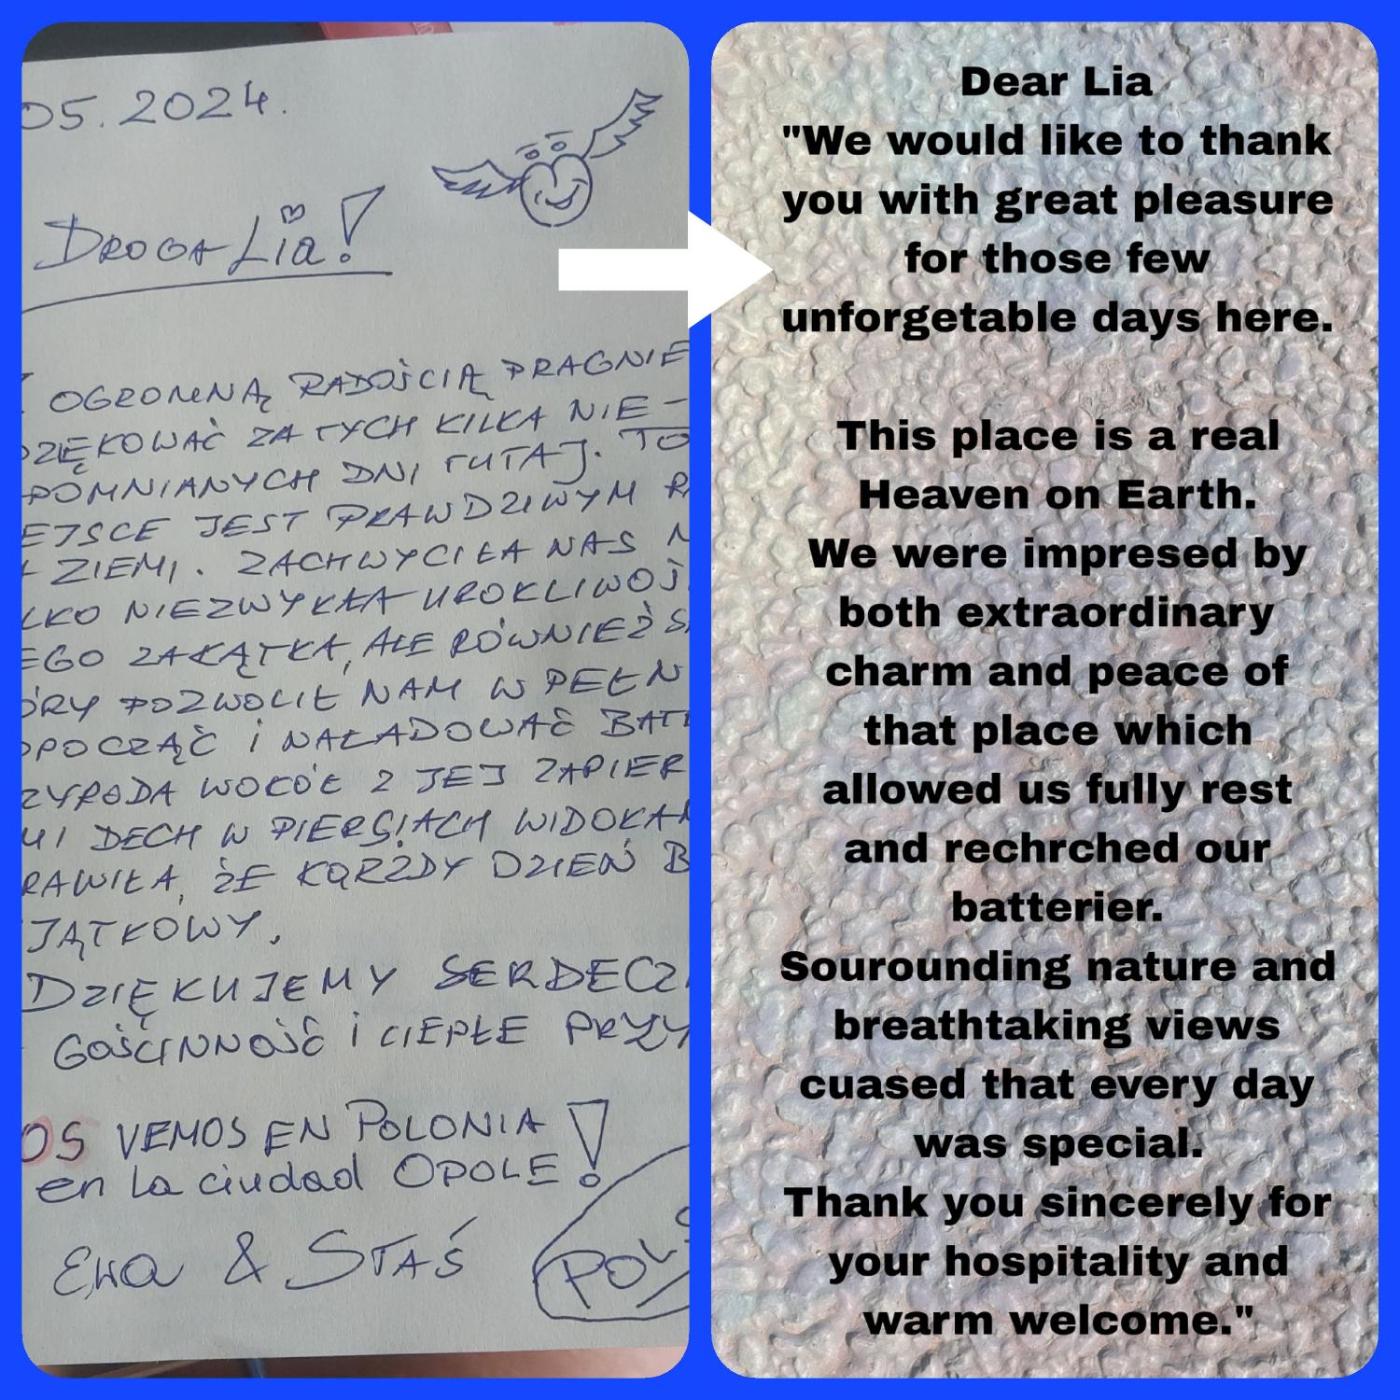 05.2024.
DROGA Lia!
OGROMNĄ RADOŚCIĄ PRAGNIE
DZIĘKOWAĆ ZA TYCH KILKA NIE-
POMNIANYCH DNI TUTAJ. TO
EJSCE JEST PRAWDZIWYM R
ZIEMI. ZACHWYCIŁA NAS N
LKO NIEZWYKŁA UROKLIWOŚ
EGO ZAKĄTKA, ALE RÓWNIEŻ S
ÓRY POZWOLIŁ NAM W PEŁN
OPOCZĄĆ I NAŁADOWAĆ BAT
ZYRODA WOKÓŁ Z JEJ ZAPIER
MI DECH W PIERSIACH WIDOKAM
RAWIŁA, ŻE KARZDY DZIEŃ B
JĄTKOWY.
DZIĘKUJEMY SERDECZ
GOŚCINNOŚĆ I CIEPŁE PRZY
OS VEMOS EN POLONIA!
en la ciudad OPOLE!
Ewa & STAŚ
POL
Dear Lia
"We would like to thank
you with great pleasure
for those few
unforgetable days here.
This place is a real
Heaven on Earth.
We were impresed by
both extraordinary
charm and peace of
that place which
allowed us fully rest
and rechrched our
batterier.
Sourounding nature and
breathtaking views
cuased that every day
was special.
Thank you sincerely for
your hospitality and
warm welcome."